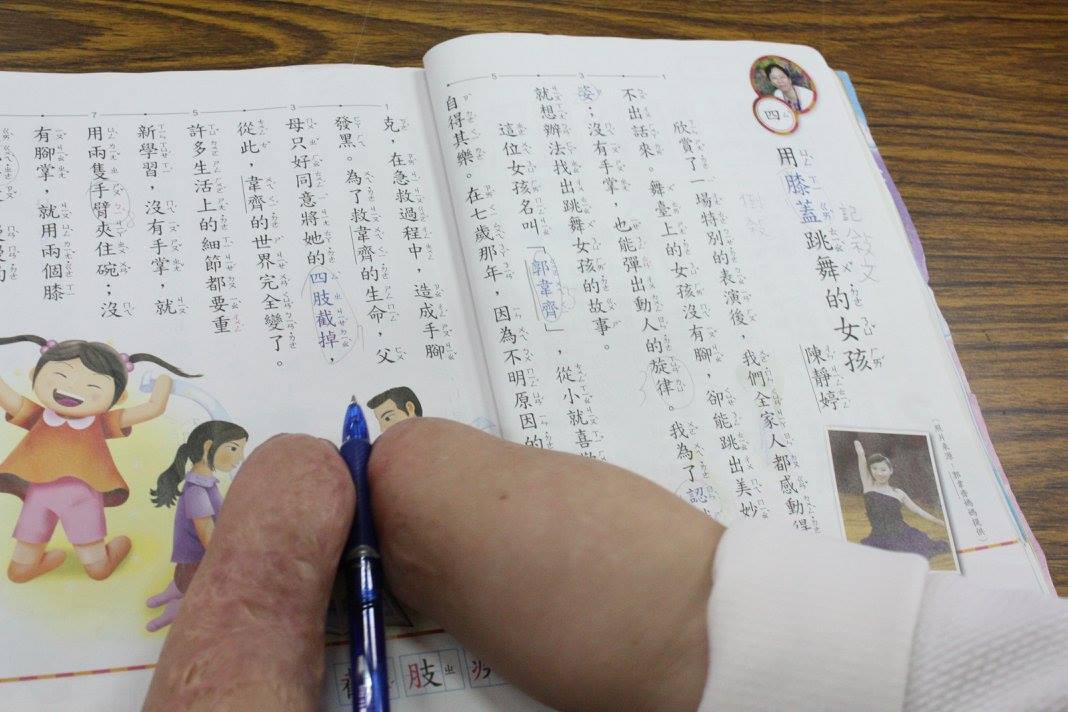 四
用膝蓋跳舞的女孩
陳靜婷
記敘文
倒敘
（照片來源：郭韋齊媽媽提供）
1 3 5
欣賞了一場特別的表演後，我們全家人都感動得
不出話來。舞臺上的女孩沒有腳，卻能跳出美妙
姿；沒有手掌，也能彈出動人的旋律。我為了認
就想辦法找出跳舞女孩的故事。
這位女孩名叫「郭韋齊」，從小就喜歡
自得其樂。在七歲那年，因為不明原因的
1 3 5 7
克，在急救過程中，造成手腳
發黑。為了救韋齊的生命，父
母只好同意將她的四肢截掉，
從此，韋齊的世界完全變了。
許多生活上的細節都要重
新學習，沒有手掌，就
用兩隻手臂夾住碗；沒
有腳掌，就用兩個膝
肢 ㄓ